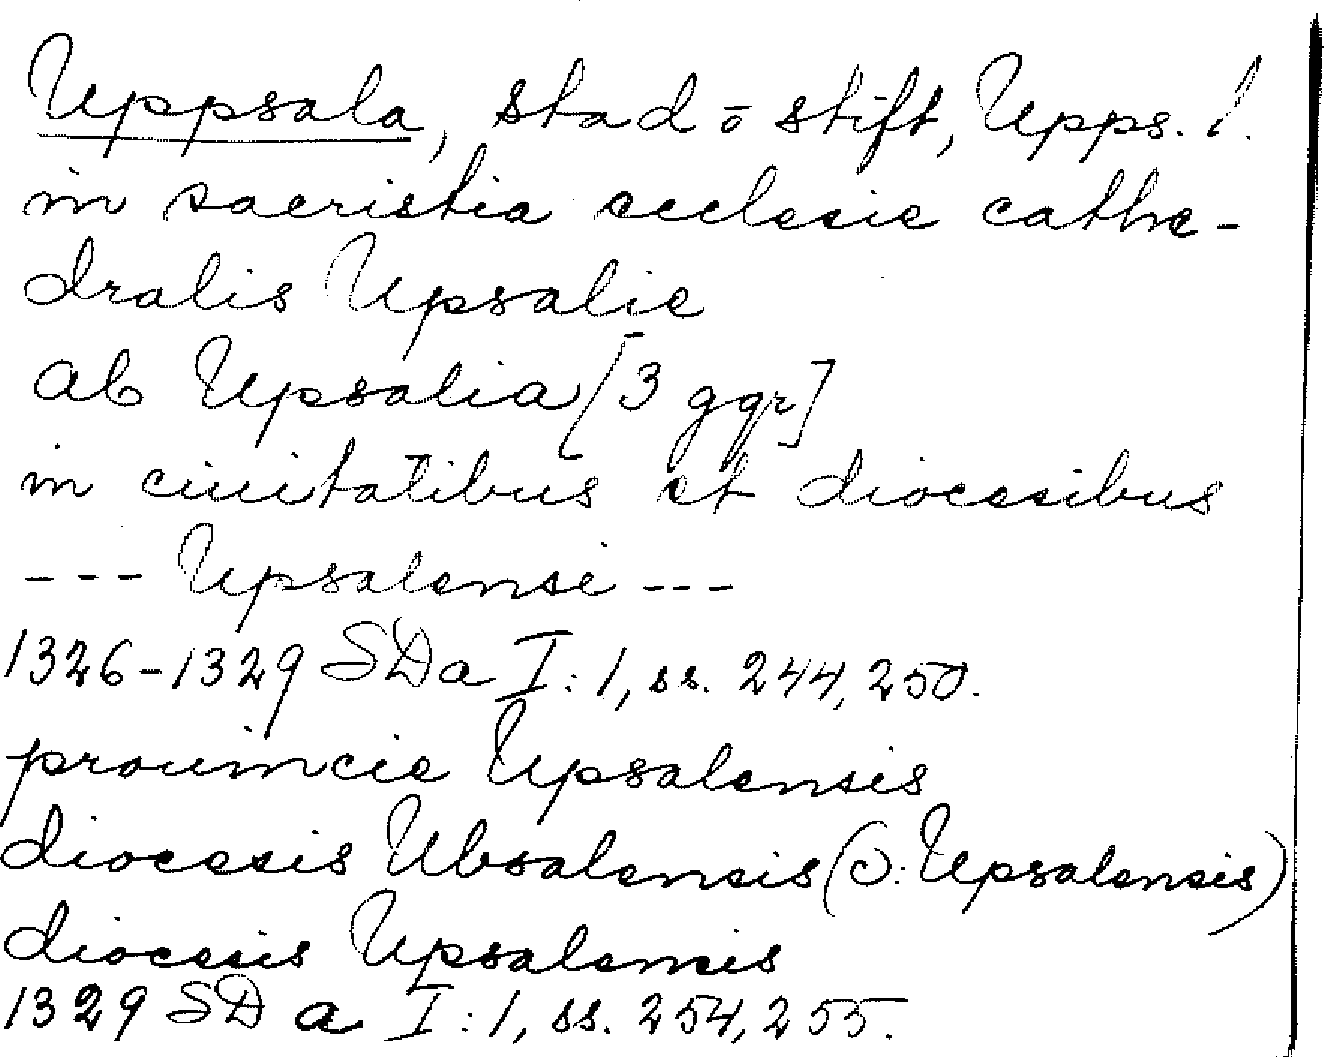 Uppsala, stad o stift, Upps. l.
in sacristia ecclesie cathe-
dralis Upsalie
ab Upsalia [3 ggr]
in ciuitatibus et diocesibus
--- Upsalensi ---
1326-1329 SD a I:1, ss. 244, 250.
prouincie Upsalensis
diocesis Ubsalensis (ɔ: Upsalensis)
diocesis Upsalensis
1329 SD a I:1, ss. 254, 255.